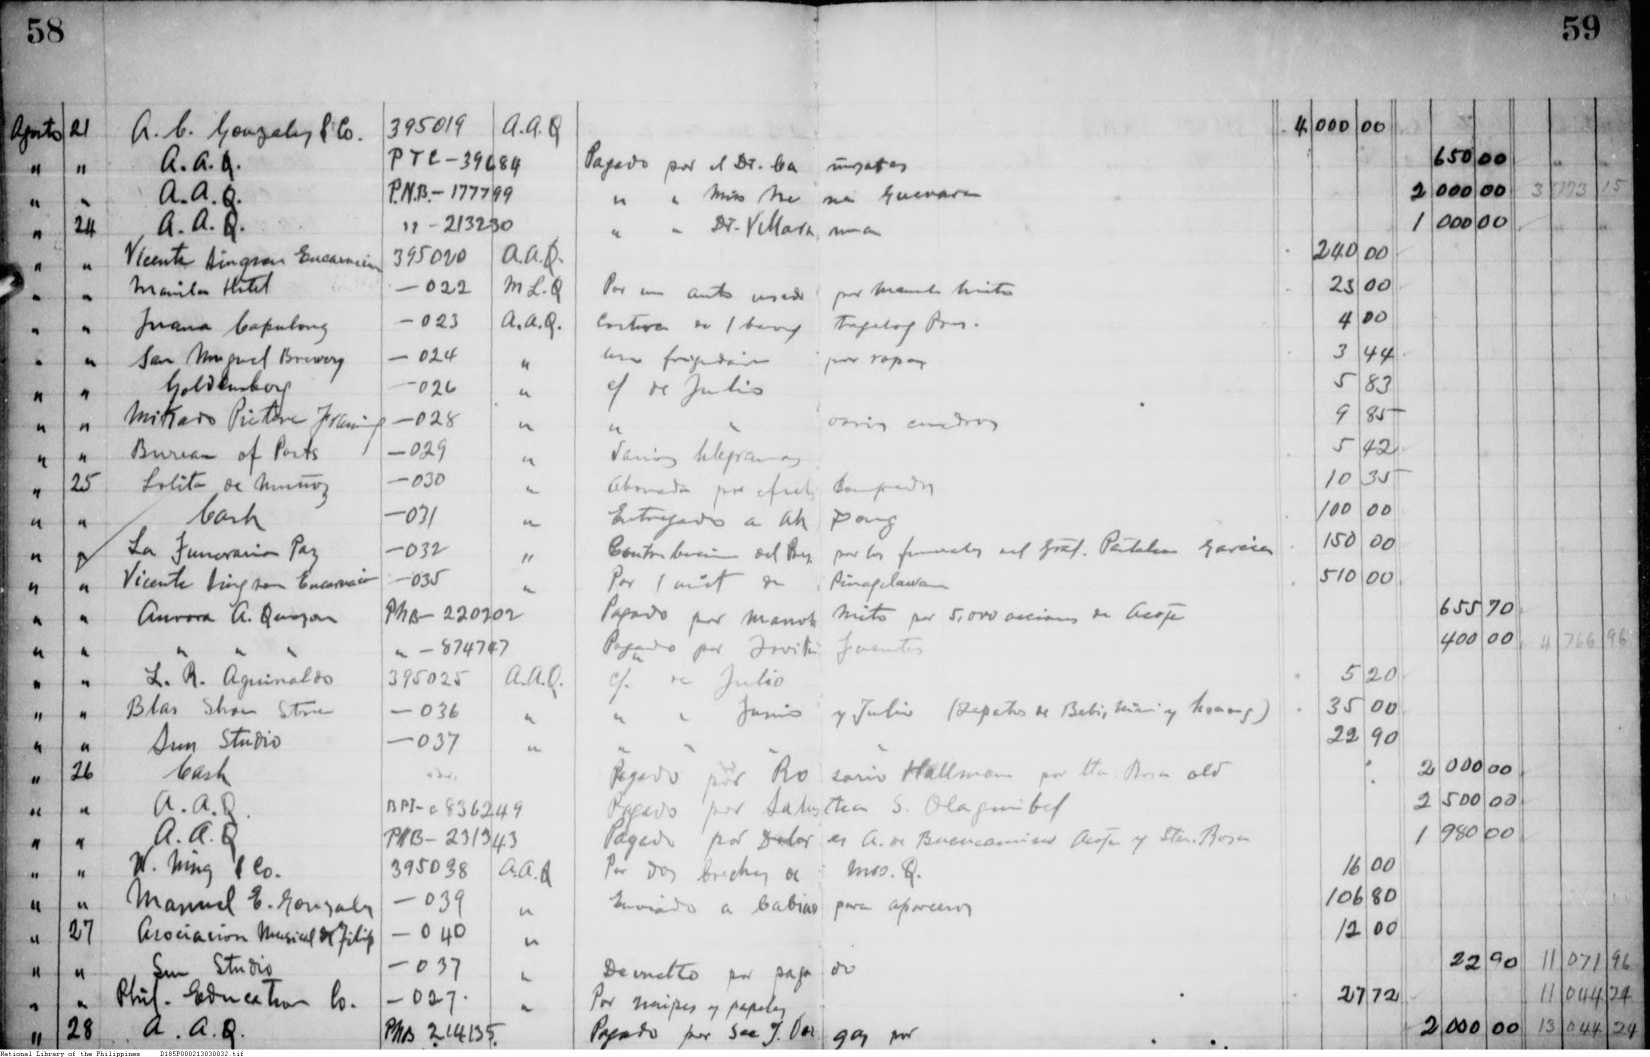 58 59
Agosto 21 A. C. Gonzales & Co. 395019 A.A.Q 4 000 00
" " A.A.Q. PTC-39684 Pagado por el Dr. 650 00
" " A.A.Q. P.N.B.-177799 " " Miss Guevara 2 000 00 3 073 15
" 24 A.A.Q. " -213230 " " Dr. Villarama 1 000 00
" " Vicente Singson Encarnacion 395020 A.A.Q. 240 00
" " Manila Hotel —022 M L.Q Por un auto usado por 23 00
" " Juana Capulong —023 A.A.Q. Costura de 1 4 00
" " San Miguel Brewery —024 " frigidaire por 3 44
" " Goldenberg —026 " c/ de Julio 5 83
" " Mikado Picture Framing —028 " " " varios cuadros 9 85
" " Bureau of Posts —029 " Varios telegramas 5 42
" 25 Lolita de Muñoz —030 " Abonada por comprados 10 35
" " Cash —031 " Entregado a Ah Pong 100 00
" " La Funeraria Paz —032 " Contribucion del por los funerales del Gral. Pantaleon Garcia 150 00
" " Vicente Singson Encarnacion —035 " Por 1 de Pinaglawan 510 00
" " Aurora A. Quezon PNB-220202 Pagado por por 5,000 acciones de Acoje 655 70
" " " " " " -874747 Pagado por Fuentes 400 00 4 766 96
" " L. R. Aguinaldo 395025 A.A.Q. c/. de Julio 5 20
" " Blas Shoe Store —036 " " " Junio y Julio (Zapatos de Baby, Nini y ) 35 00
" " Sun Studio —037 " " " " " 22 90
" 26 Cash Pagado por Rosario Hallman por Sta. Rosa old 2 000 00
" " A.A.Q. BPI-c 836249 Pagado por S. Olaguibel 2 500 00
" " A.A.Q PNB-231343 Pagado por Dolores A. de Buencamino Acoje y Sta. Rosa 1 980 00
" " W. Ning & Co. 395038 A.A.Q Por dos de Mrs. Q. 16 00
" " Manuel E. Gonzales —039 " Enviado a Cabiao para aparceros 106 80
" 27 Asociacion Musical de Filip —040 " 12 00
" " Sun Studio —037 " Devuelto por pagado 22 90 11 071 96
" " Phil. Education Co. —027. " Por naipes y papeles 27 72 11 044 24
" 28 A.A.Q. PNB 214135. Pagado por J. Vargas por 2 000 00 13 044 24
National Library of the Philippines D185P000213030032.tif